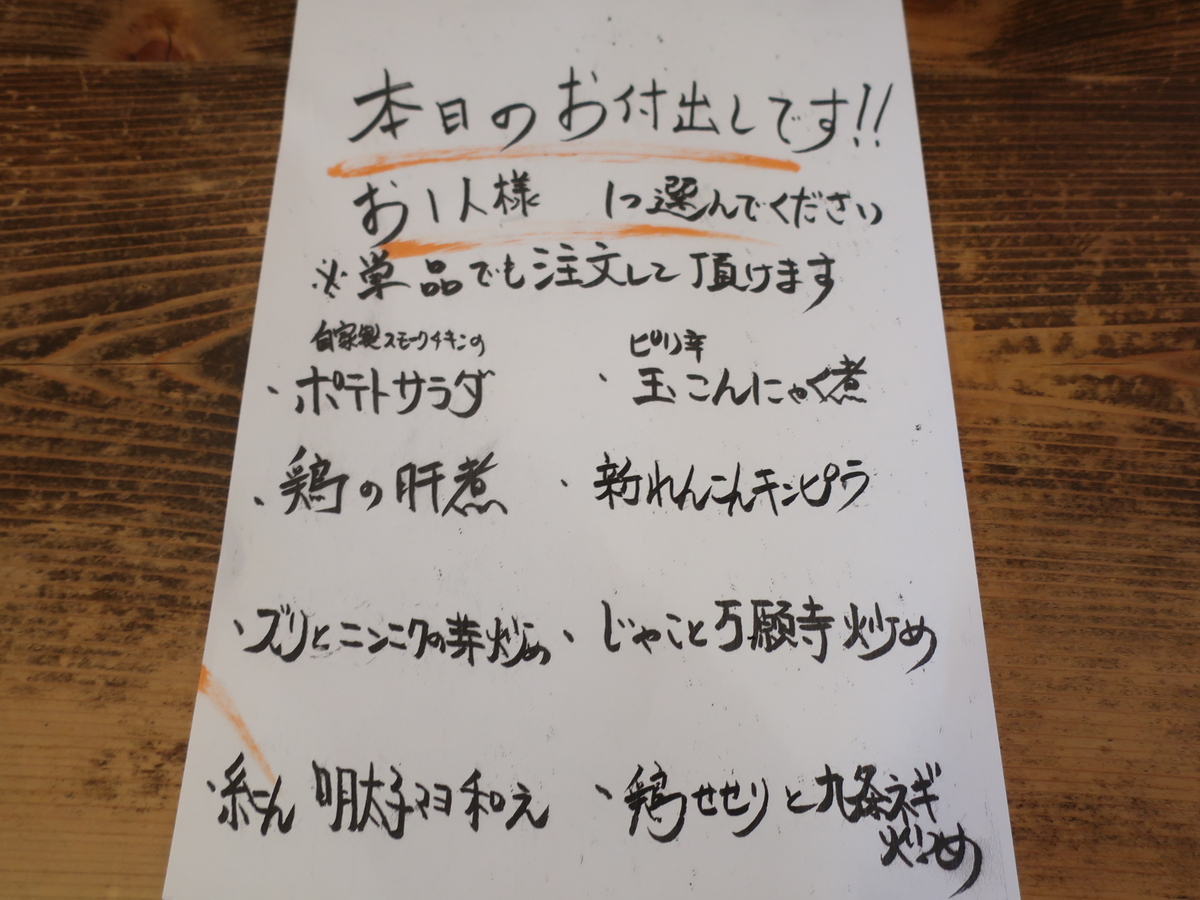 本日のお付出しです!!
お1人様 1つ選んでください
※単品でも注文して頂けます
自家製スモークチキンの
・ポテトサラダ
ピリ辛
・玉こんにゃく煮
・鶏の肝煮
・新れんこんキンピラ
・ズリとニンニクの芽炒め
・じゃこと万願寺炒め
・糸こん 明太子マヨ和え
・鶏せせりと九条ネギ
炒め